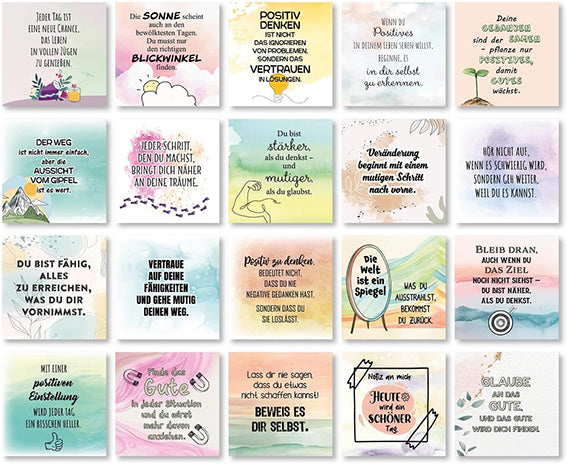 JEDER TAG IST
EINE NEUE CHANCE,
DAS LEBEN
IN VOLLEN ZÜGEN
ZU GENIEßEN.
Die SONNE scheint
auch an den
bewölktesten Tagen.
Du musst nur
den richtigen
BLICKWINKEL
finden.
POSITIV
DENKEN
IST NICHT
DAS IGNORIEREN
VON PROBLEMEN,
SONDERN DAS
VERTRAUEN
IN LÖSUNGEN.
WENN DU
POSITIVES
IN DEINEM LEBEN SEHEN WILLST,
BEGINNE, ES
in dir selbst
zu erkennen.
Deine
GEDANKEN
sind der SAMEN
- pflanze nur
POSITIVES,
damit
GUTES
wächst.
DER WEG
IST NICHT IMMER EINFACH,
ABER DIE
AUSSICHT
VOM GIPFEL
IST ES WERT.
JEDER SCHRITT,
DEN DU MACHST,
BRINGT DICH NÄHER
AN DEINE TRÄUME.
Du bist
stärker,
als du denkst –
und
mutiger,
als du glaubst.
Veränderung
beginnt mit einem
mutigen Schritt
nach vorne.
HÖR NICHT AUF,
WENN ES SCHWIERIG WIRD,
SONDERN GEH WEITER,
WEIL DU ES KANNST.
DU BIST FÄHIG,
ALLES
ZU ERREICHEN,
WAS DU DIR
VORNIMMST.
VERTRAUE
AUF DEINE
FÄHIGKEITEN
UND GEHE MUTIG
DEINEN WEG.
Positiv zu denken,
BEDEUTET NICHT,
DASS DU NIE
NEGATIVE GEDANKEN HAST,
SONDERN DASS DU
SIE LOSLÄSST.
Die
Welt
ist ein
Spiegel
WAS DU
AUSSTRAHLST,
BEKOMMST
DU ZURÜCK.
BLEIB DRAN,
AUCH WENN DU
DAS ZIEL
NOCH NICHT SIEHST –
DU BIST NÄHER,
ALS DU DENKST.
MIT EINER
positiven
Einstellung
WIRD JEDER TAG
EIN BISSCHEN HELLER.
Finde das
Gute
in jeder Situation
und du wirst
mehr davon
anziehen.
Lass dir nie sagen,
dass du etwas
nicht schaffen kannst!
BEWEIS ES
DIR SELBST.
Notiz an mich
HEUTE
wird ein
SCHÖNER
Tag
GLAUBE
AN DAS
GUTE,
UND DAS GUTE
WIRD DICH FINDEN.